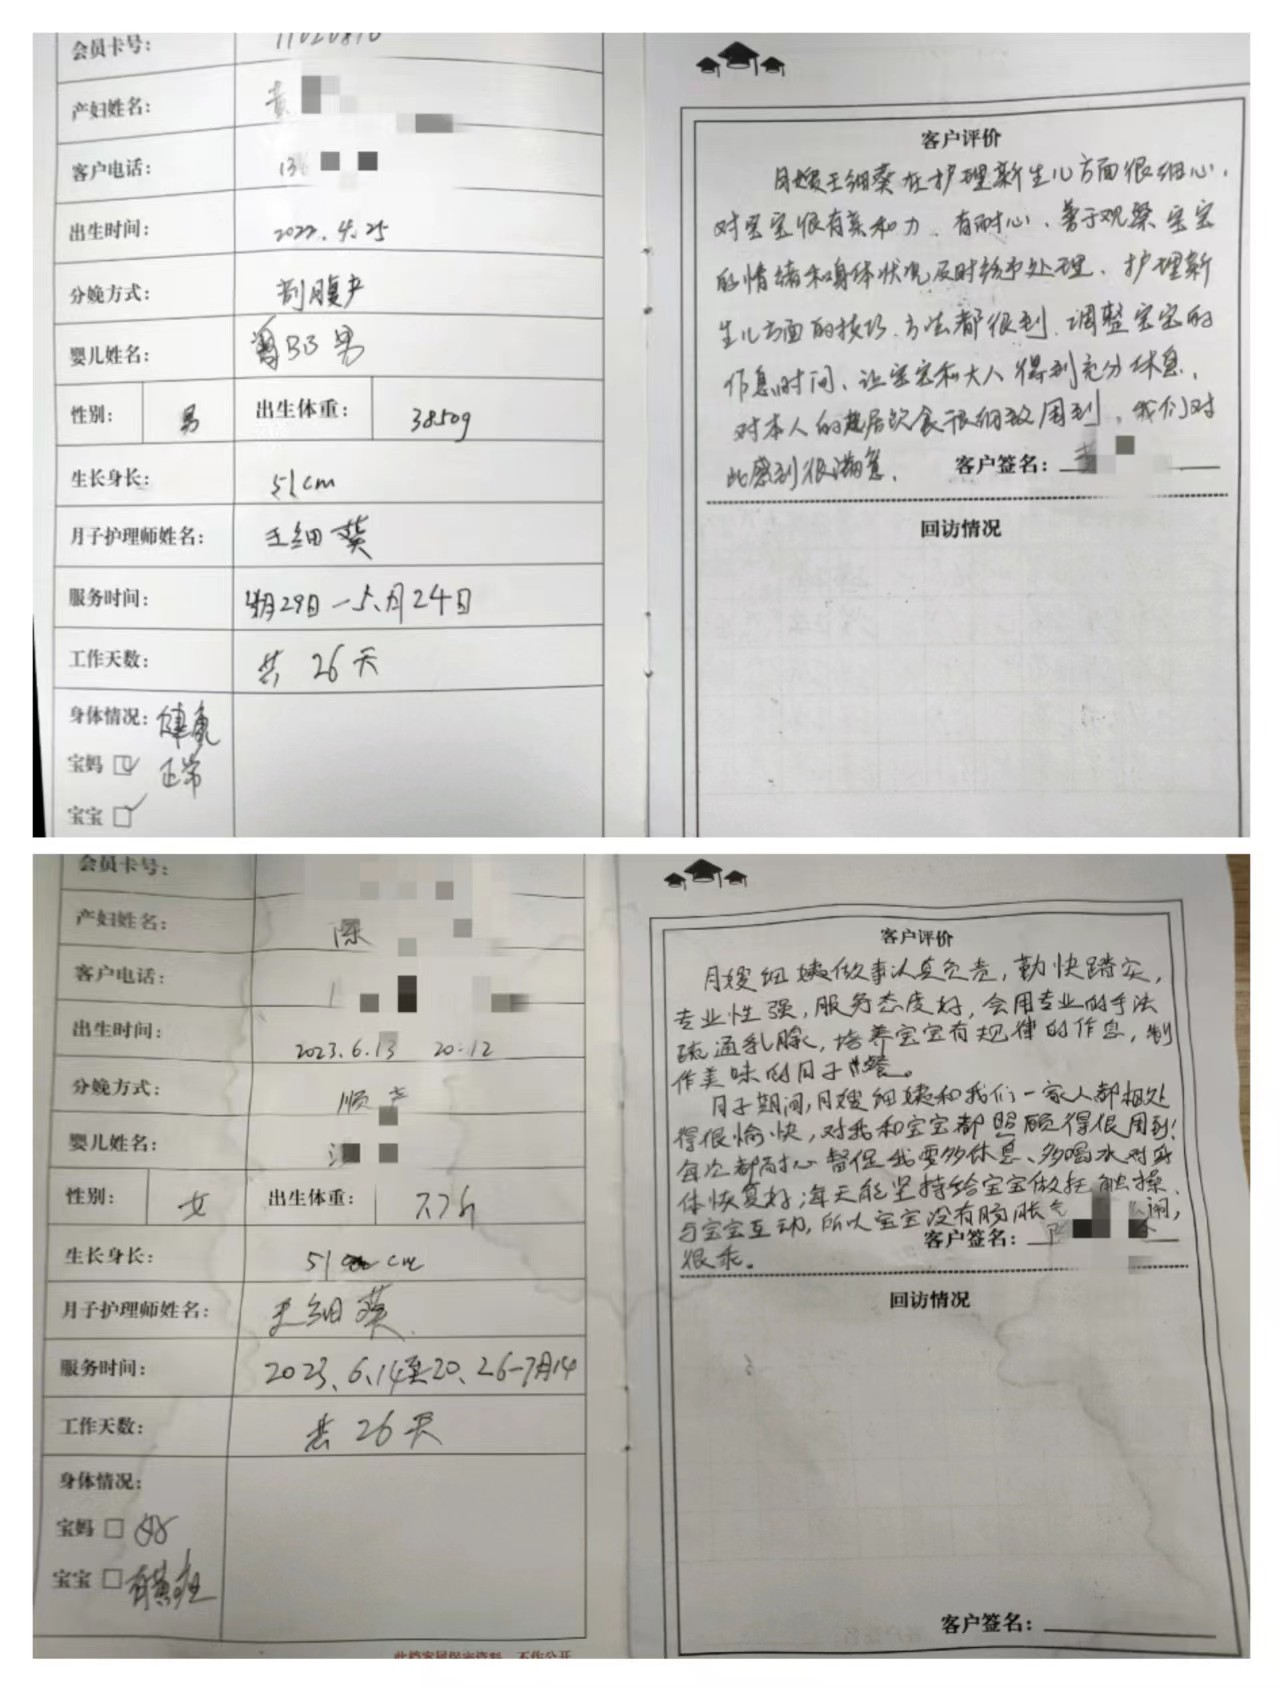 会员卡号: 11020810
产妇姓名: 袁
客户电话: 13
出生时间: 2022.4.25
分娩方式: 剖腹产
婴儿姓名: BB 男
性别: 男 出生体重: 3850g
生长身长: 51cm
月子护理师姓名: 王细葵
服务时间: 4月29日—5月24日
工作天数: 共 26天
身体情况: 健康
宝妈 正常
宝宝
客户评价
月嫂王细葵在护理新生儿方面很细心,
对宝宝很有亲和力、有耐心、善于观察宝宝
的情绪和身体状况及时给予处理、护理新
生儿方面的技巧、方法都很到、调整宝宝的
作息时间、让宝宝和大人得到充分休息,
对本人的起居饮食很细致周到,我们对
此感到很满意.
客户签名:
回访情况
会员卡号:
产妇姓名: 陈
客户电话: 1
出生时间: 2023.6.13 20:12
分娩方式: 顺产
婴儿姓名:
性别: 女 出生体重:
生长身长: 51 cm
月子护理师姓名: 王细葵
服务时间: 2023.6.14至20.26-7月14
工作天数: 共 26天
身体情况:
宝妈 好
宝宝 有黄疸
客户评价
月嫂细姨做事认真负责,勤快踏实,
专业性强,服务态度好,会用专业的手法
疏通乳腺,培养宝宝有规律的作息,制
作美味的月子餐。
月子期间,月嫂细姨和我们一家人都相处
得很愉快,对我和宝宝都照顾得很周到!
每次都耐心督促我要多休息、多喝水对身
体恢复好;每天能坚持给宝宝做抚触操、
与宝宝互动,所以宝宝没有肠胀气 闹,
很乖。
客户签名:
回访情况
客户签名:
此档案属保密资料,不作公开